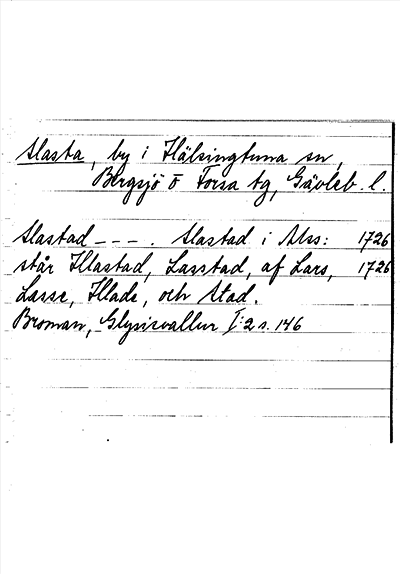 Alasta, by i Hälsingtuna sn,
Bergsjö o Forsa tg, Gävleb. l.
Alastad - - - . Alastad i Mss: 1726
står Hlastad, Lasstad, af Lars, 1726
Lasse, Hlade, och Stad.
Broman, Glysisvallur I:2 s. 146